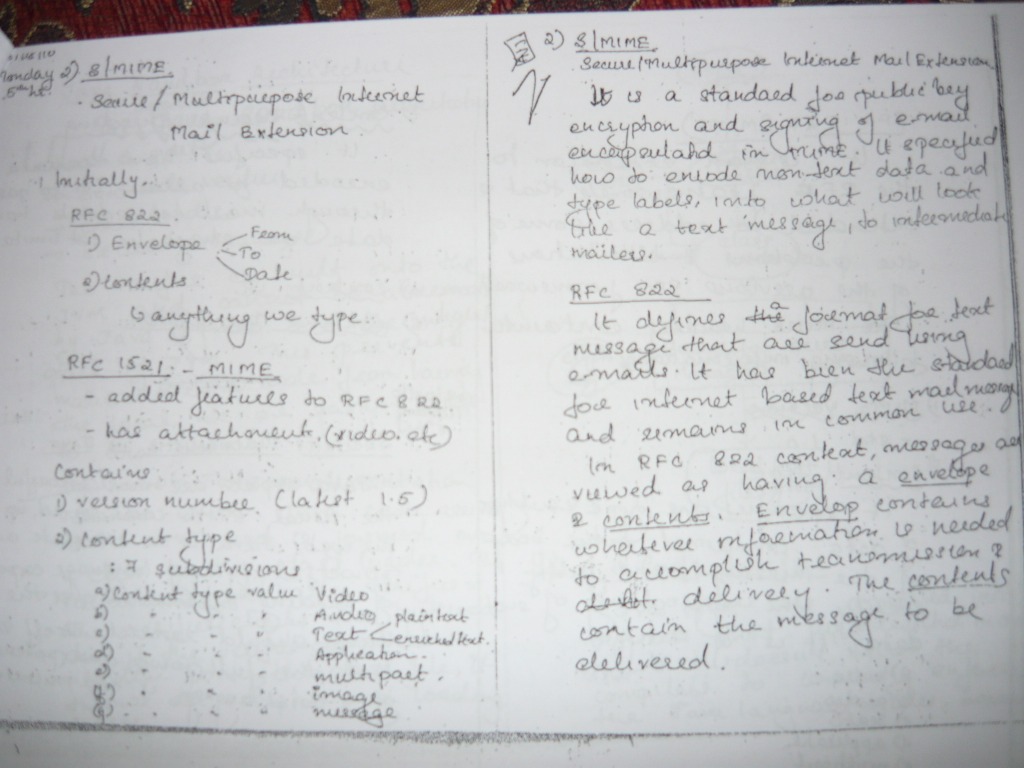 Monday
5th hr.
2) S/MIME.
- Secure / Multipurpose Internet
Mail Extension.
Initially.
RFC 822.
1) Envelope
From
To
Date
2) Contents
anything we type
RFC 1521 - MIME
- added features to RFC 822
- has attachment. (video. etc)
Contains
1) version number (latest 1.5)
2) Content type
: 7 subdivisions
a) Content type value Video
b) " " " Audio
c) " " " Text
plaintext
enriched text.
d) " " " Application.
e) " " " multipart.
f) " " " image
g) " " " message
2) S/MIME.
Secure/Multipurpose Internet Mail Extension.
It is a standard for public key
encryption and signing of e.mail
encapsulatd in MIME. It specified
how to encode non-text data and
type labels, into what will look
like a text message, to intermediate
mailers.
RFC 822
It defines the a format for text
message that are send using
emails. It has bien the standard
for internet based text mail message
and remains in common use.
In RFC 822 context, messages are
viewed as having a envelope
& contents. Envelop contains
whatever information is needed
to accomplish transmission &
delivery. The contents
contain the message to be
delivered.